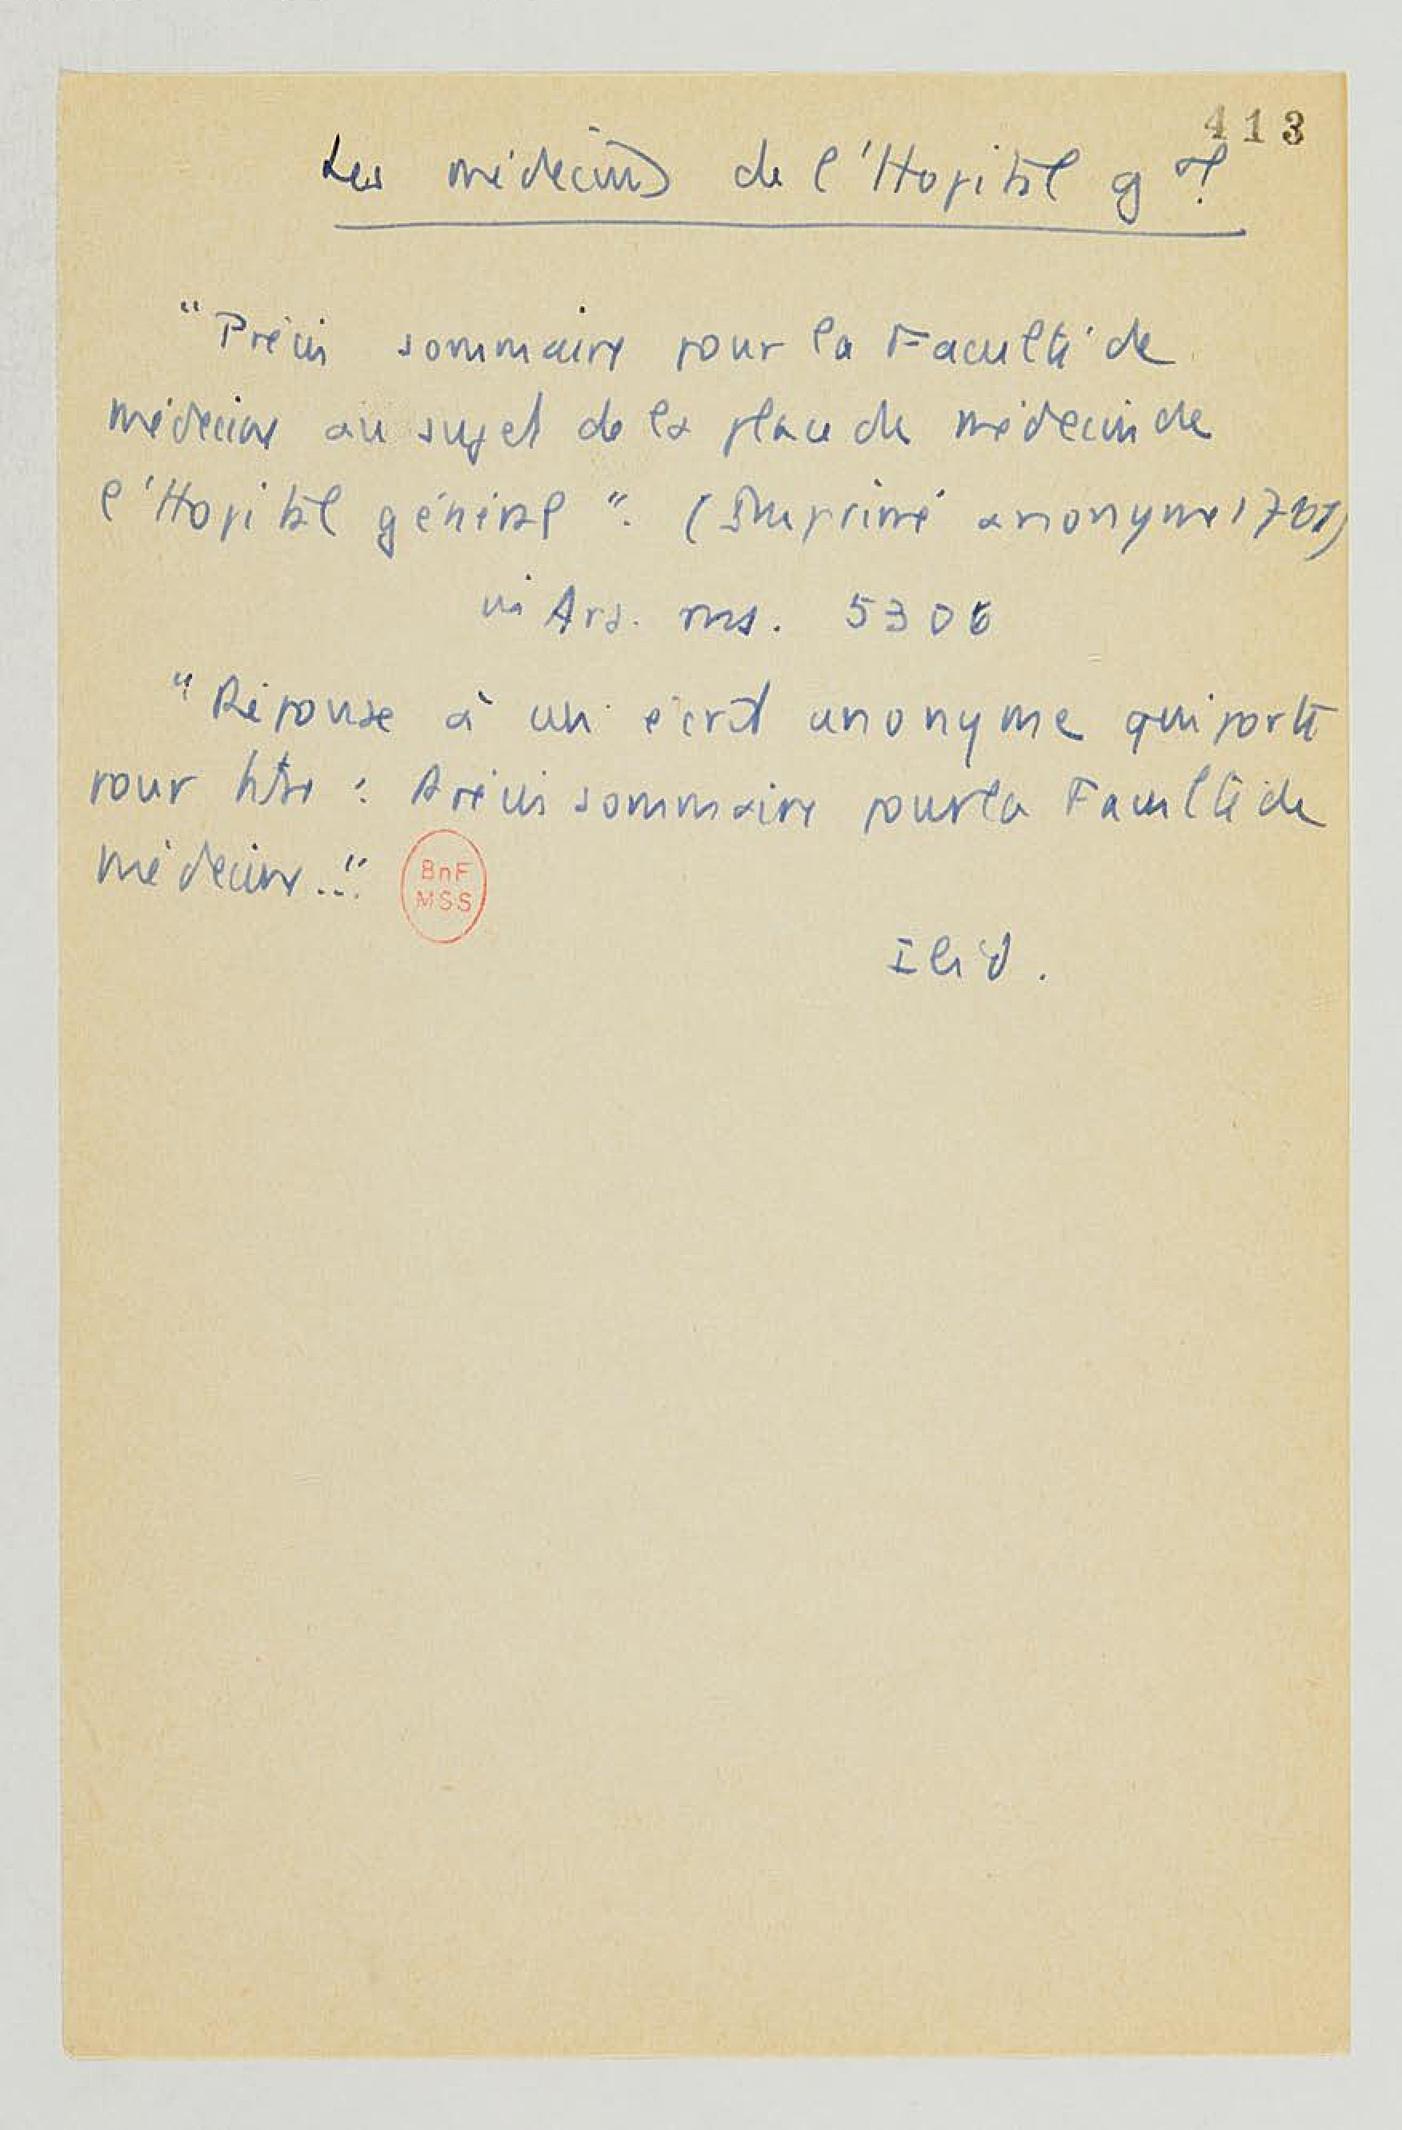 413
Les médecins de l'Hopital gal.
"Précis sommaire pour la Faculté de
médecine au sujet de la place de médecin de
l'Hopital général". (Imprimé anonyme
in Ars. ms. 5306
"Réponse à un écrit anonyme qui porte
pour titre : Précis sommaire pour la Faculté de
médecine..."
BnF
MSS
Ibid.